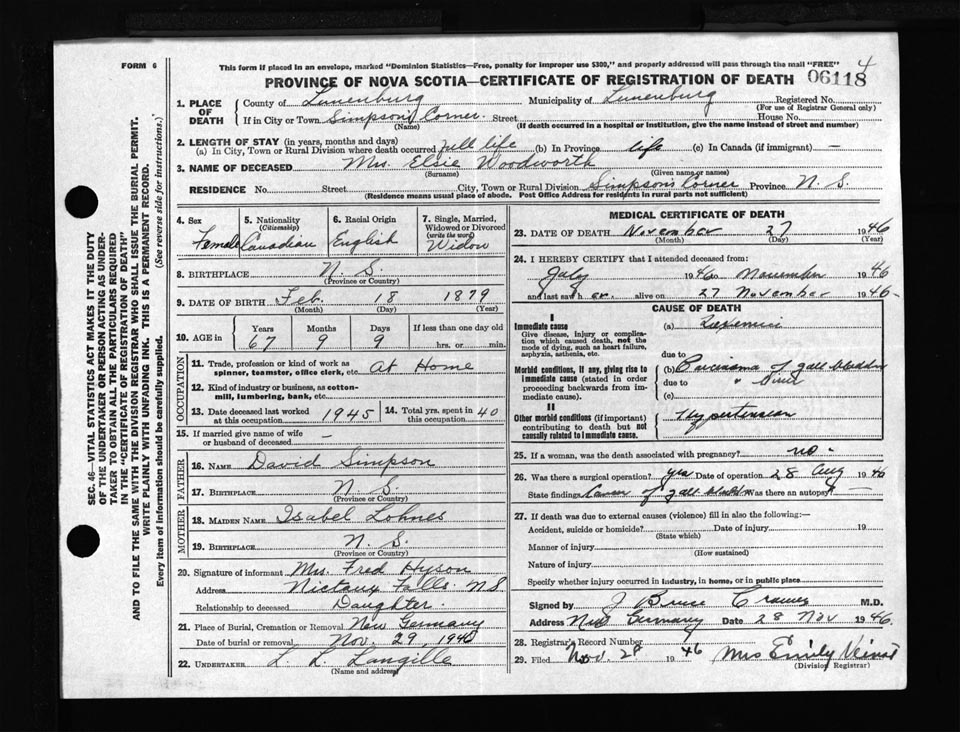 FORM 6
This form if placed in an envelope, marked "Dominion Statistics—Free, penalty for improper use $300," and properly addressed will pass through the mail "FREE"
4
PROVINCE OF NOVA SCOTIA—CERTIFICATE OF REGISTRATION OF DEATH 06118
1. PLACE OF DEATH
County of Lunenburg Municipality of Lunenburg Registered No.
(For use of Registrar General only)
If in City or Town Simpson's Corner Street House No.
(Name) (If death occurred in a hospital or institution, give the name instead of street and number)
2. LENGTH OF STAY (in years, months and days)
(a) In City, Town or Rural Division where death occurred full life (b) In Province life (c) In Canada (if immigrant) —
3. NAME OF DECEASED Mrs. Elsie Woodworth
(Surname) (Given name or names)
RESIDENCE No. Street City, Town or Rural Division Simpson's Corner Province N. S.
(Residence means usual place of abode. Post Office Address for residents in rural parts not sufficient)
4. Sex Female
5. Nationality (Citizenship) Canadian
6. Racial Origin English
7. Single, Married, Widowed or Divorced (write the word) Widow
8. BIRTHPLACE N. S.
(Province or Country)
9. DATE OF BIRTH Feb. 18 1879
(Month) (Day) (Year)
10. AGE in Years Months Days If less than one day old
67 9 9 hrs. or min.
OCCUPATION
11. Trade, profession or kind of work as spinner, teamster, office clerk, etc. At Home
12. Kind of industry or business, as cotton-mill, lumbering, bank, etc.
13. Date deceased last worked at this occupation 1945
14. Total yrs. spent in this occupation 40
15. If married give name of wife or husband of deceased —
FATHER
16. NAME David Simpson
17. BIRTHPLACE N. S.
(Province or Country)
MOTHER
18. MAIDEN NAME Isabel Lohnes
19. BIRTHPLACE N. S.
(Province or Country)
20. Signature of informant Mrs. Fred Hyson
Address Nictaux Falls N S
Relationship to deceased Daughter.
21. Place of Burial, Cremation or Removal New Germany
Date of burial or removal Nov. 29 1946
22. UNDERTAKER L. L. Langille
(Name and address)
MEDICAL CERTIFICATE OF DEATH
23. DATE OF DEATH November 27 1946
(Month) (Day) (Year)
24. I HEREBY CERTIFY that I attended deceased from
July 1946 to November 1946
and last saw her alive on 27 November 1946
CAUSE OF DEATH
I
Immediate cause
Give disease, injury or complication which caused death, not the mode of dying, such as heart failure, asphyxia, asthenia, etc.
(a)
due to
Morbid conditions, if any, giving rise to immediate cause (stated in order proceeding backwards from immediate cause).
(b) Carcinoma of gall bladder
due to " Liver
(c)
II
Other morbid conditions (if important) contributing to death but not causally related to immediate cause.
Hypertension
25. If a woman, was the death associated with pregnancy? no
26. Was there a surgical operation? yes Date of operation 28 Aug 1946
State findings Cancer of gall bladder Was there an autopsy?
27. If death was due to external causes (violence) fill in also the following:—
Accident, suicide or homicide? Date of injury 19
(State which)
Manner of injury
(How sustained)
Nature of injury
Specify whether injury occurred in industry, in home, or in public place
Signed by J Bruce M.D.
Address New Germany Date 28 Nov 1946.
28. Registrar's Record Number
29. Filed Nov. 28 1946 Mrs Emily
(Division Registrar)
SEC. 46—VITAL STATISTICS ACT MAKES IT THE DUTY
OF THE UNDERTAKER OR PERSON ACTING AS UNDER-
TAKER TO OBTAIN ALL THE PARTICULARS REQUIRED
IN THE "CERTIFICATE OF REGISTRATION OF DEATH"
AND TO FILE THE SAME WITH THE DIVISION REGISTRAR WHO SHALL ISSUE THE BURIAL PERMIT.
WRITE PLAINLY WITH UNFADING INK. THIS IS A PERMANENT RECORD.
Every item of information should be carefully supplied. (See reverse side for instructions.)